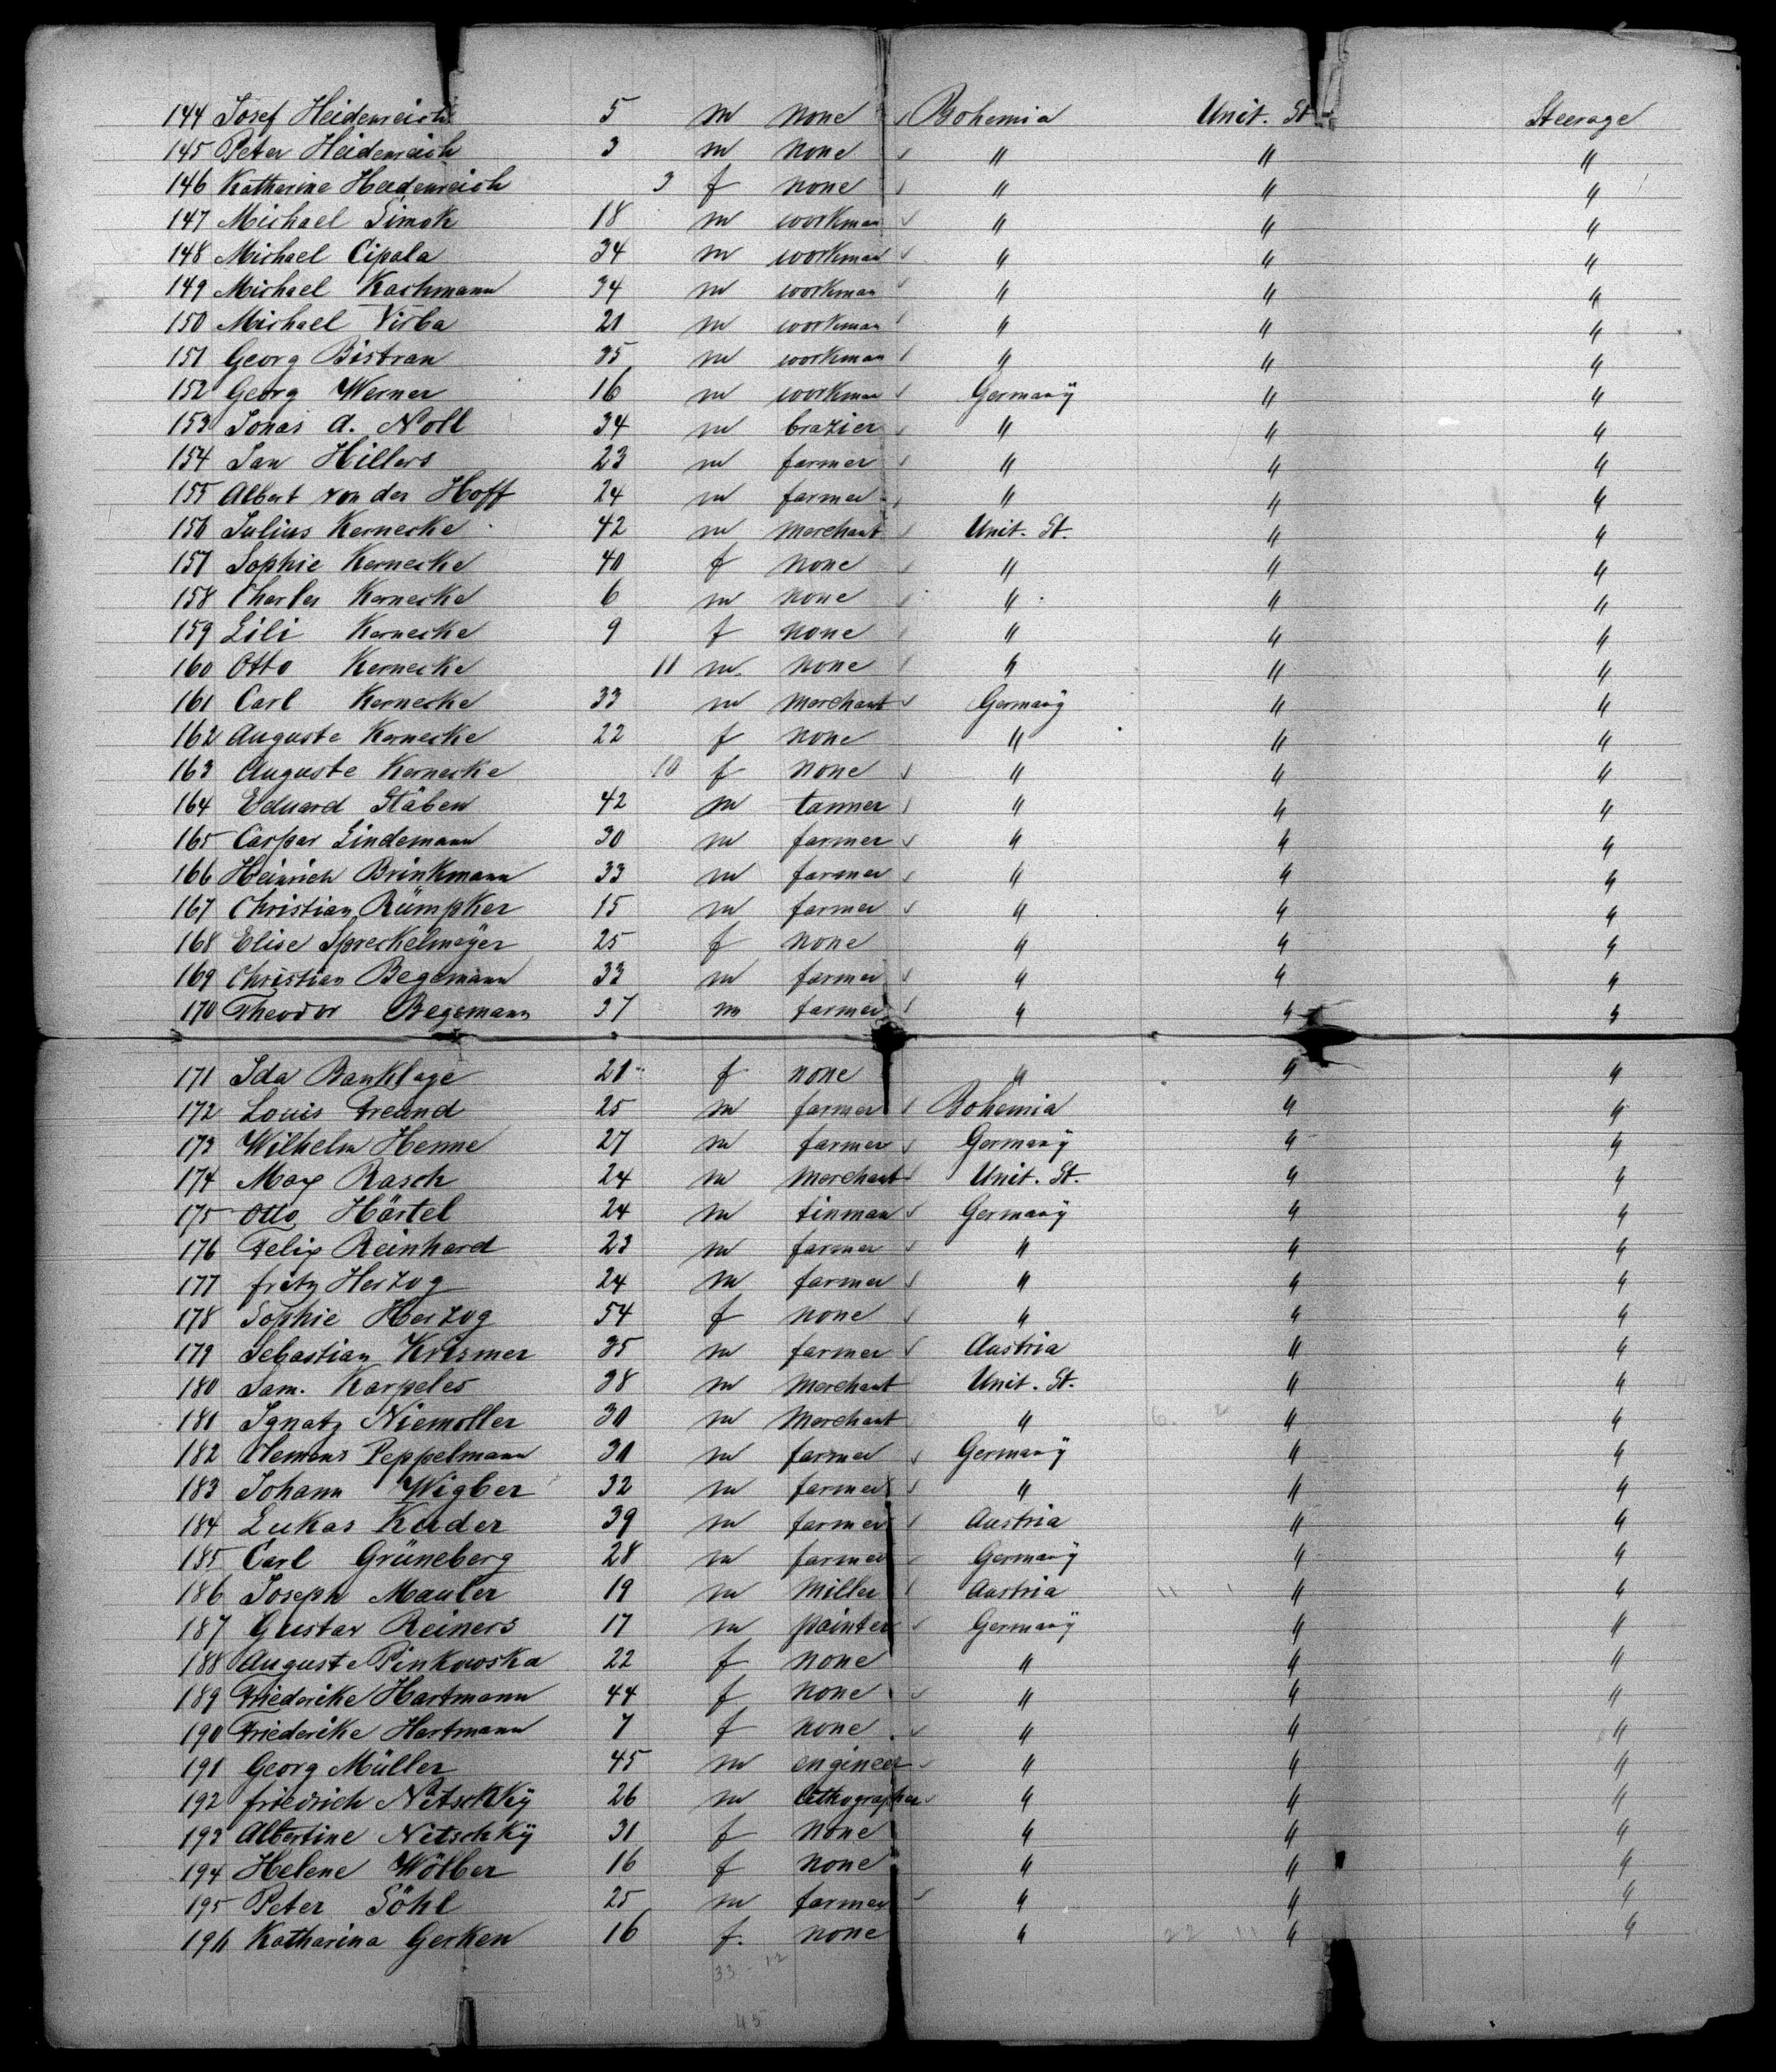 144 Josef Heidenreich 5 m none Bohemia Unit. St. Steerage
145 Peter Heidenreich 3 m none " " "
146 Katherine Heidenreich 3 f none " " "
147 Michael Simok 18 m workman " " "
148 Michael Cipala 34 m workman " " "
149 Michael Kachmann 34 m workman " " "
150 Michael Virba 21 m workman " " "
151 Georg Bistran 35 m workman " " "
152 Georg Werner 16 m workman Germanÿ " "
153 Jonas A. Noll 34 m brazier " " "
154 Jan Hillers 23 m farmer " " "
155 Albert von der Hoff 24 m farmer " " "
156 Julius Kernecke 42 m merchant Unit. St. " "
157 Sophie Kernecke 40 f none " " "
158 Charles Kernecke 6 m none " " "
159 Lili Kernecke 9 f none " " "
160 Otto Kernecke 11 m. none " " "
161 Carl Kernecke 33 m merchant Germanÿ " "
162 Auguste Kernecke 22 f none " " "
163 Auguste Kernecke 10 f none " " "
164 Eduard Stäben 42 m tanner " " "
165 Caspar Lindemann 30 m farmer " " "
166 Heinrich Brinkmann 33 m farmer " " "
167 Christian Rümpker 15 m farmer " " "
168 Elise Spreckelmeÿer 25 f none " " "
169 Christian Begemann 33 m farmer " " "
170 Theodor Begemann 37 m farmer " " "
171 Ida Banklage 21 f none " " "
172 Louis Freund 25 m farmer Bohemia " "
173 Wilhelm Henne 27 m farmer Germanÿ " "
174 Max Rasch 24 m merchant Unit. St. " "
175 Otto Härtel 24 m tinman Germanÿ " "
176 Felix Reinhard 23 m farmer " " "
177 Fritz Herzog 24 m farmer " " "
178 Sophie Herzog 54 f none " " "
179 Sebastian Krismer 35 m farmer Austria " "
180 Sam. Karpeles 38 m merchant Unit. St. " "
181 Ignatz Niemoller 30 m merchant " " "
182 Clemens Peppelmann 31 m farmer Germanÿ " "
183 Johann Wigber 32 m farmer " " "
184 Lukas Kuder 39 m farmer Austria " "
185 Carl Grüneberg 28 m farmer Germanÿ " "
186 Joseph Mauler 19 m miller Austria " "
187 Gustav Reiners 17 m painter Germanÿ " "
188 Auguste Pinkowska 22 f none " " "
189 Friederike Hartmann 44 f none " " "
190 Friederike Hartmann 7 f none " " "
191 Georg Müller 45 m engineer " " "
192 Friedrich Nitschkÿ 26 m lithographer " " "
193 Albertine Nitschkÿ 31 f none " " "
194 Helene Wölber 16 f none " " "
195 Peter Söhl 25 m farmer " " "
196 Katharina Gerken 16 f. none " " "
33 - 12
45